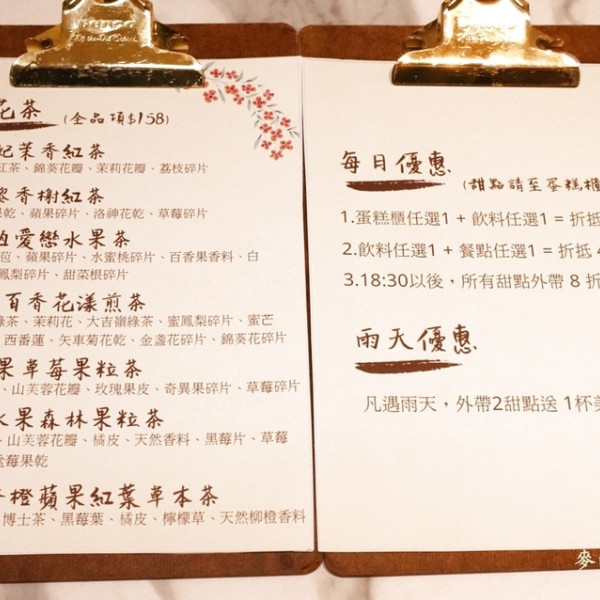 花茶 (全品項$158)
妃茉香紅茶
紅茶、錦葵花瓣、茉莉花瓣、荔枝碎片
香榭紅茶
果乾、蘋果碎片、洛神花乾、草莓碎片
愛戀水果茶
苞、蘋果碎片、水蜜桃碎片、百香果香料、白
鳳梨碎片、甜菜根碎片
百香花漾煎茶
綠茶、茉莉花、大吉嶺綠茶、蜜鳳梨碎片、蜜芒
西番蓮、矢車菊花乾、金盞花碎片、錦葵花碎片
果草莓果粒茶
、山芙蓉花瓣、玫瑰果皮、奇異果碎片、草莓碎片
水果森林果粒茶
、山芙蓉花瓣、橘皮、天然香料、黑莓片、草莓
莓果乾
橙蘋果紅葉草本茶
博士茶、黑莓葉、橘皮、檸檬草、天然柳橙香料
每日優惠 (甜點請至蛋糕櫃
1.蛋糕櫃任選1 + 飲料任選1 = 折抵
2.飲料任選1 + 餐點任選1 = 折抵
3.18:30以後，所有甜點外帶 8 折
雨天優惠
凡遇雨天，外帶2甜點送 1杯美
麥